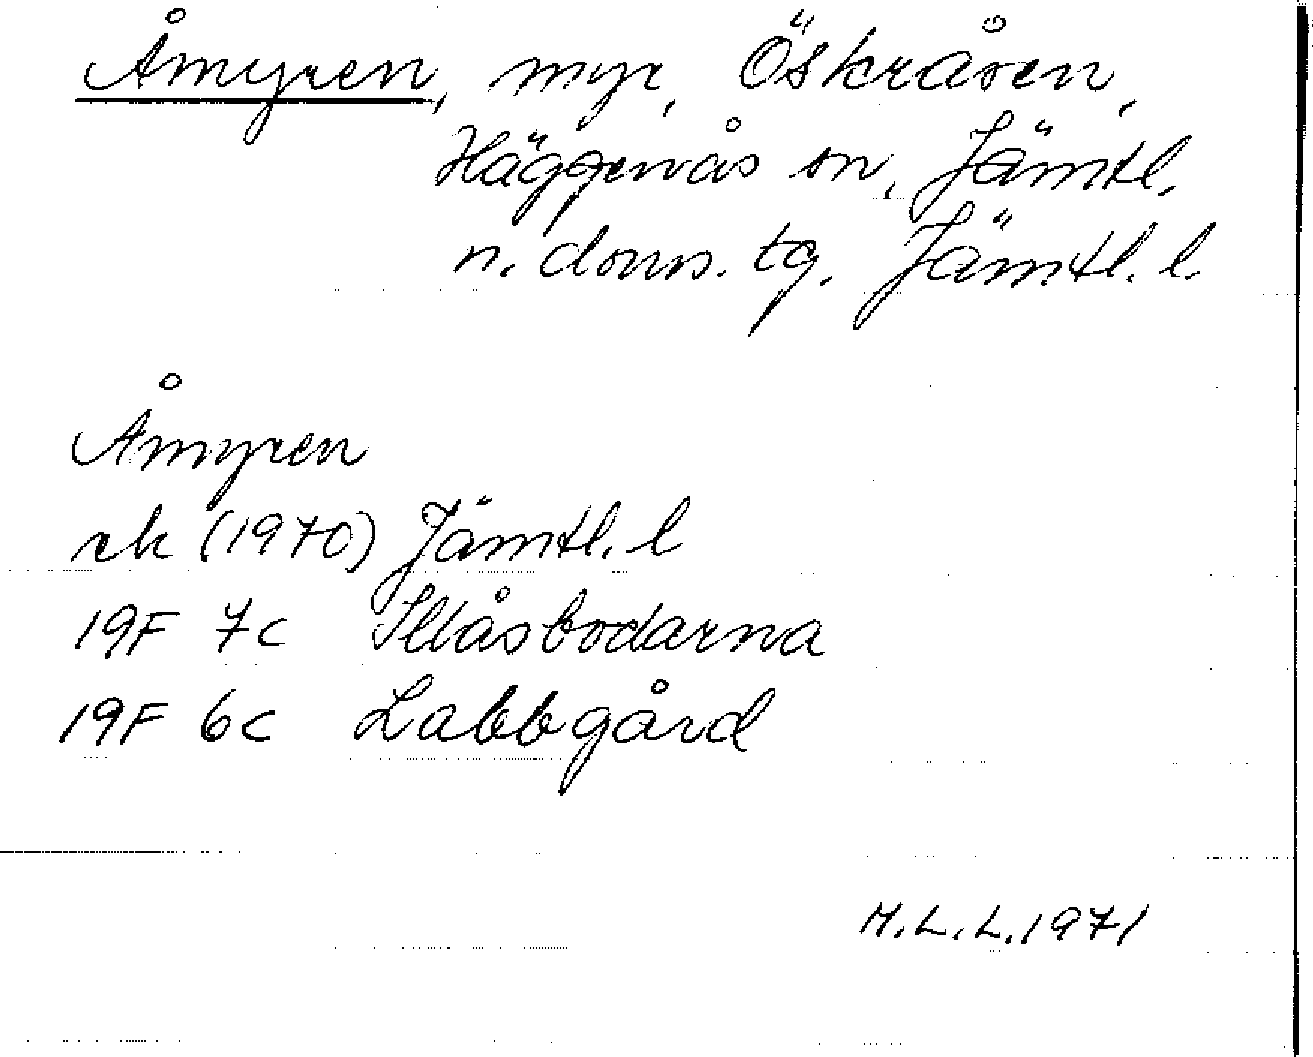 Åmyren, myr, Öskråsen,
Häggenås sn, Jämtl.
n. doms. tg. Jämtl. l.
Åmyren
rk (1970) Jämtl. l
19F 7c Illåsbodarna
19F 6c Labbgård
M.L.L. 1971